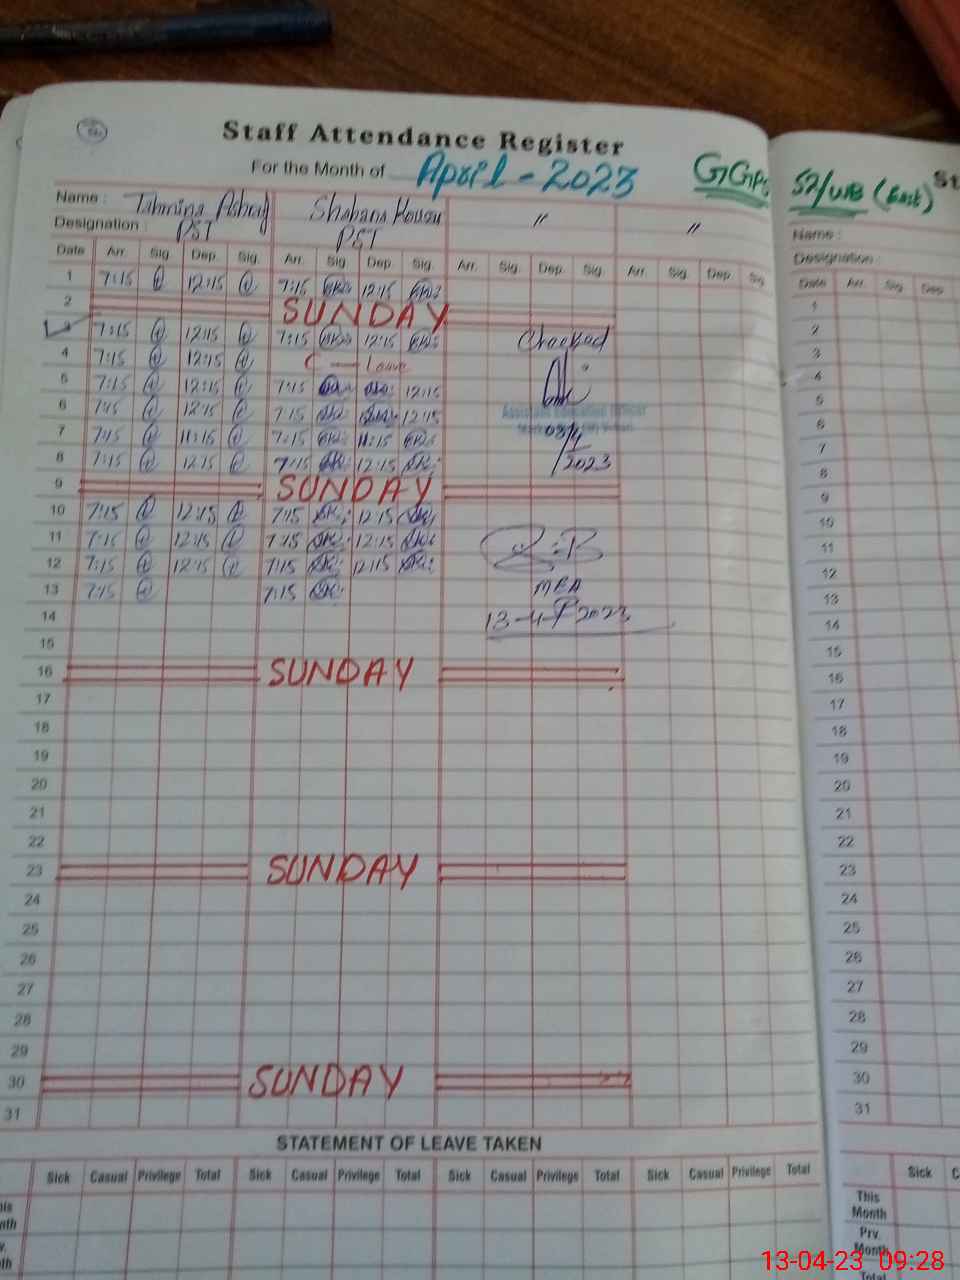 Staff Attendance Register
For the Month of April - 2023 GGPS 52/UAB (East)
Name : Tahmina Ashraf Shabana Kousar " "
Designation : PST PST
Date Arr. Sig. Dep. Sig. Arr. Sig. Dep. Sig. Arr. Sig. Dep. Sig. Arr. Sig. Dep. Sig
1 7:15 12:15 7:15 12:15
2 SUNDAY
7:15 12:15 7:15 12:15 Checked
4 7:15 12:15 C Leave
5 7:15 12:15 7:15 12:15
6 7:15 12:15 7:15 12:15 Assistant Education Officer
7 7:15 11:15 7:15 11:15 03/4
8 7:15 12:15 7:15 12:15 /2023
9 SUNDAY
10 7:15 12:15 7:15 12:15
11 7:15 12:15 7:15 12:15
12 7:15 12:15 7:15 12:15
13 7:15 7:15 MEA
14 13-4-2023
15
16 SUNDAY
17
18
19
20
21
22
23 SUNDAY
24
25
26
27
28
29
30 SUNDAY
31
STATEMENT OF LEAVE TAKEN
Sick Casual Privilege Total Sick Casual Privilege Total Sick Casual Privilege Total Sick Casual Privilege Total
St
Name :
Designation :
Date Arr. Sig. Dep
1
2
3
4
5
6
7
8
9
10
11
12
13
14
15
16
17
18
19
20
21
22
23
24
25
26
27
28
29
30
31
Sick C
This
Month
Prv.
Month
Total
13-04-23 09:28